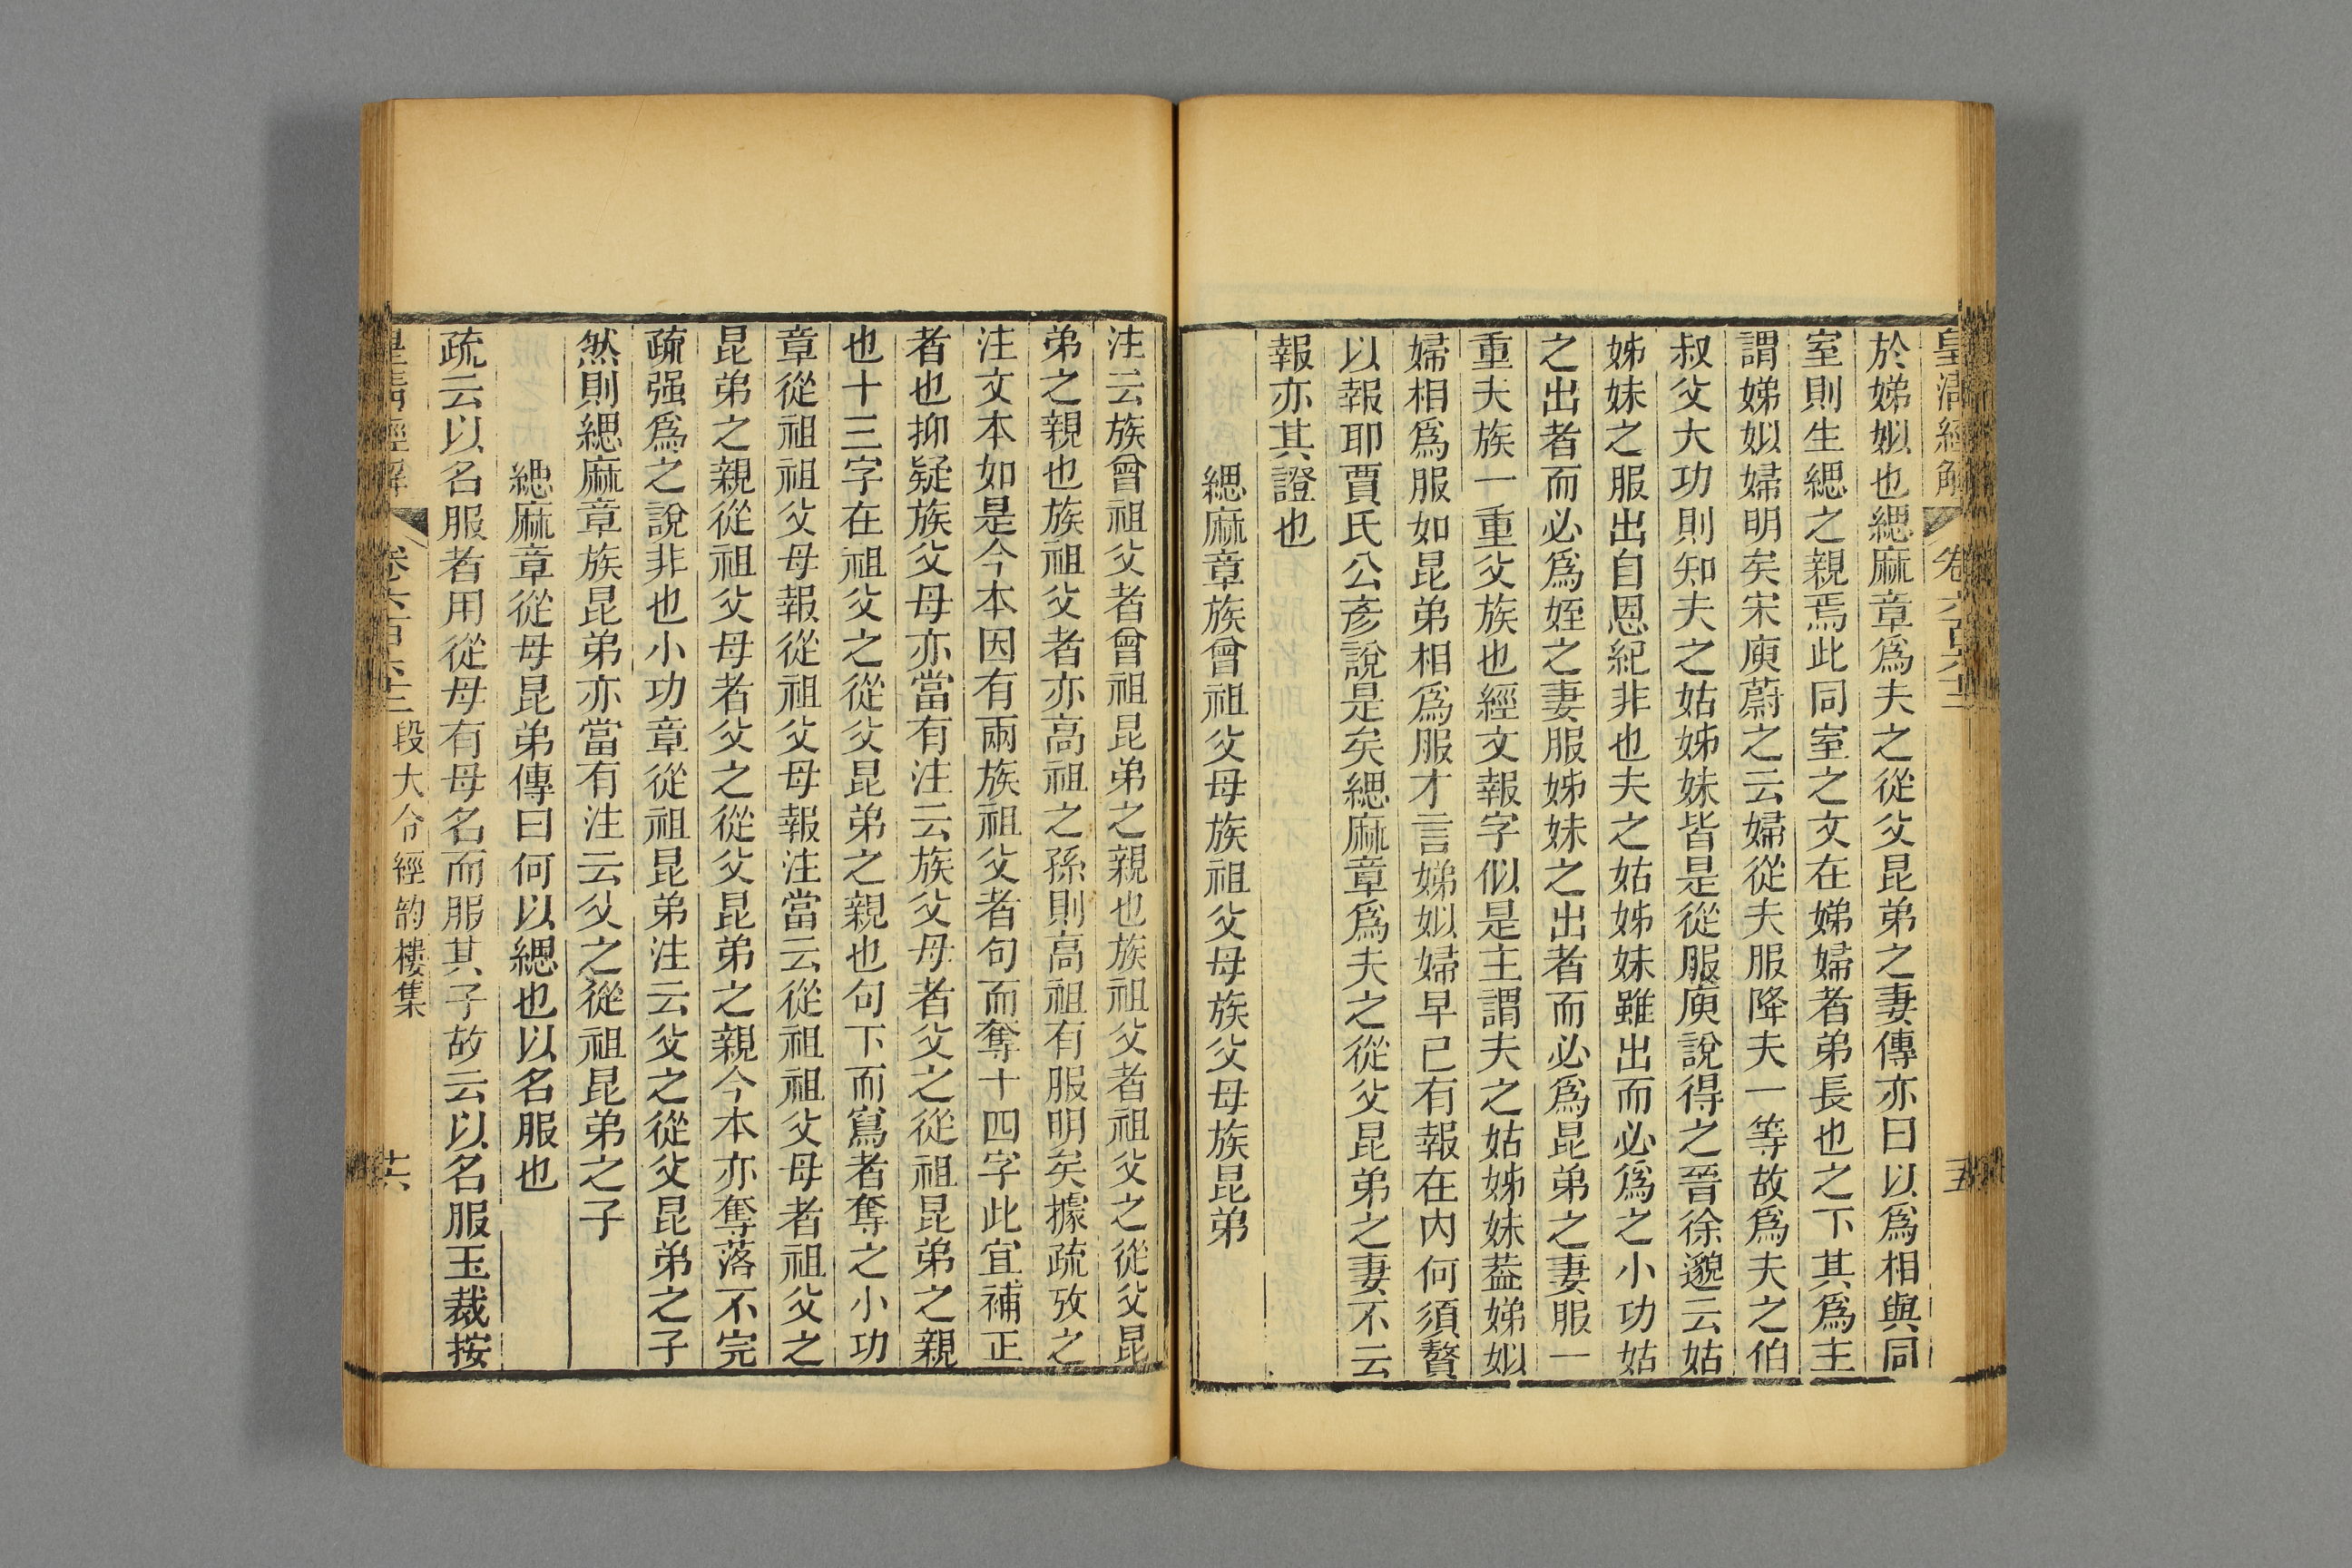 皇清經解 卷六百六十三 五
於娣姒也緦麻章爲夫之從父昆弟之妻傳亦曰以爲相與同
室則生緦之親焉此同室之文在娣婦者弟長也之下其爲主
謂娣姒婦明矣宋庾蔚之云婦從夫服降夫一等故爲夫之伯
叔父大功則知夫之姑姊妹皆是從服庾說得之晉徐邈云姑
姊妹之服出自恩紀非也夫之姑姊妹雖出而必爲之小功姑
之出者而必爲姪之妻服姊妹之出者而必爲昆弟之妻服一
重夫族一重父族也經文報字似是主謂夫之姑姊妹葢娣姒
婦相爲服如昆弟相爲服才言娣姒婦早已有報在內何須贅
以報耶賈氏公彥說是矣緦麻章爲夫之從父昆弟之妻不云
報亦其證也
緦麻章族曾祖父母族祖父母族父母族昆弟
注云族曾祖父者曾祖昆弟之親也族祖父者祖父之從父昆
弟之親也族祖父者亦高祖之孫則高祖有服明矣據疏攷之
注文本如是今本因有兩族祖父者句而奪十四字此宜補正
者也抑疑族父母亦當有注云族父母者父之從祖昆弟之親
也十三字在祖父之從父昆弟之親也句下而寫者奪之小功
章從祖祖父母報從祖父母報注當云從祖祖父母者祖父之
昆弟之親從祖父母者父之從父昆弟之親今本亦奪落不完
疏强爲之說非也小功章從祖昆弟注云父之從父昆弟之子
然則緦麻章族昆弟亦當有注云父之從祖昆弟之子
緦麻章從母昆弟傳曰何以緦也以名服也
疏云以名服者用從母有母名而服其子故云以名服玉裁按
皇淸經解 卷六百六十三 段大令經韵樓集 十六